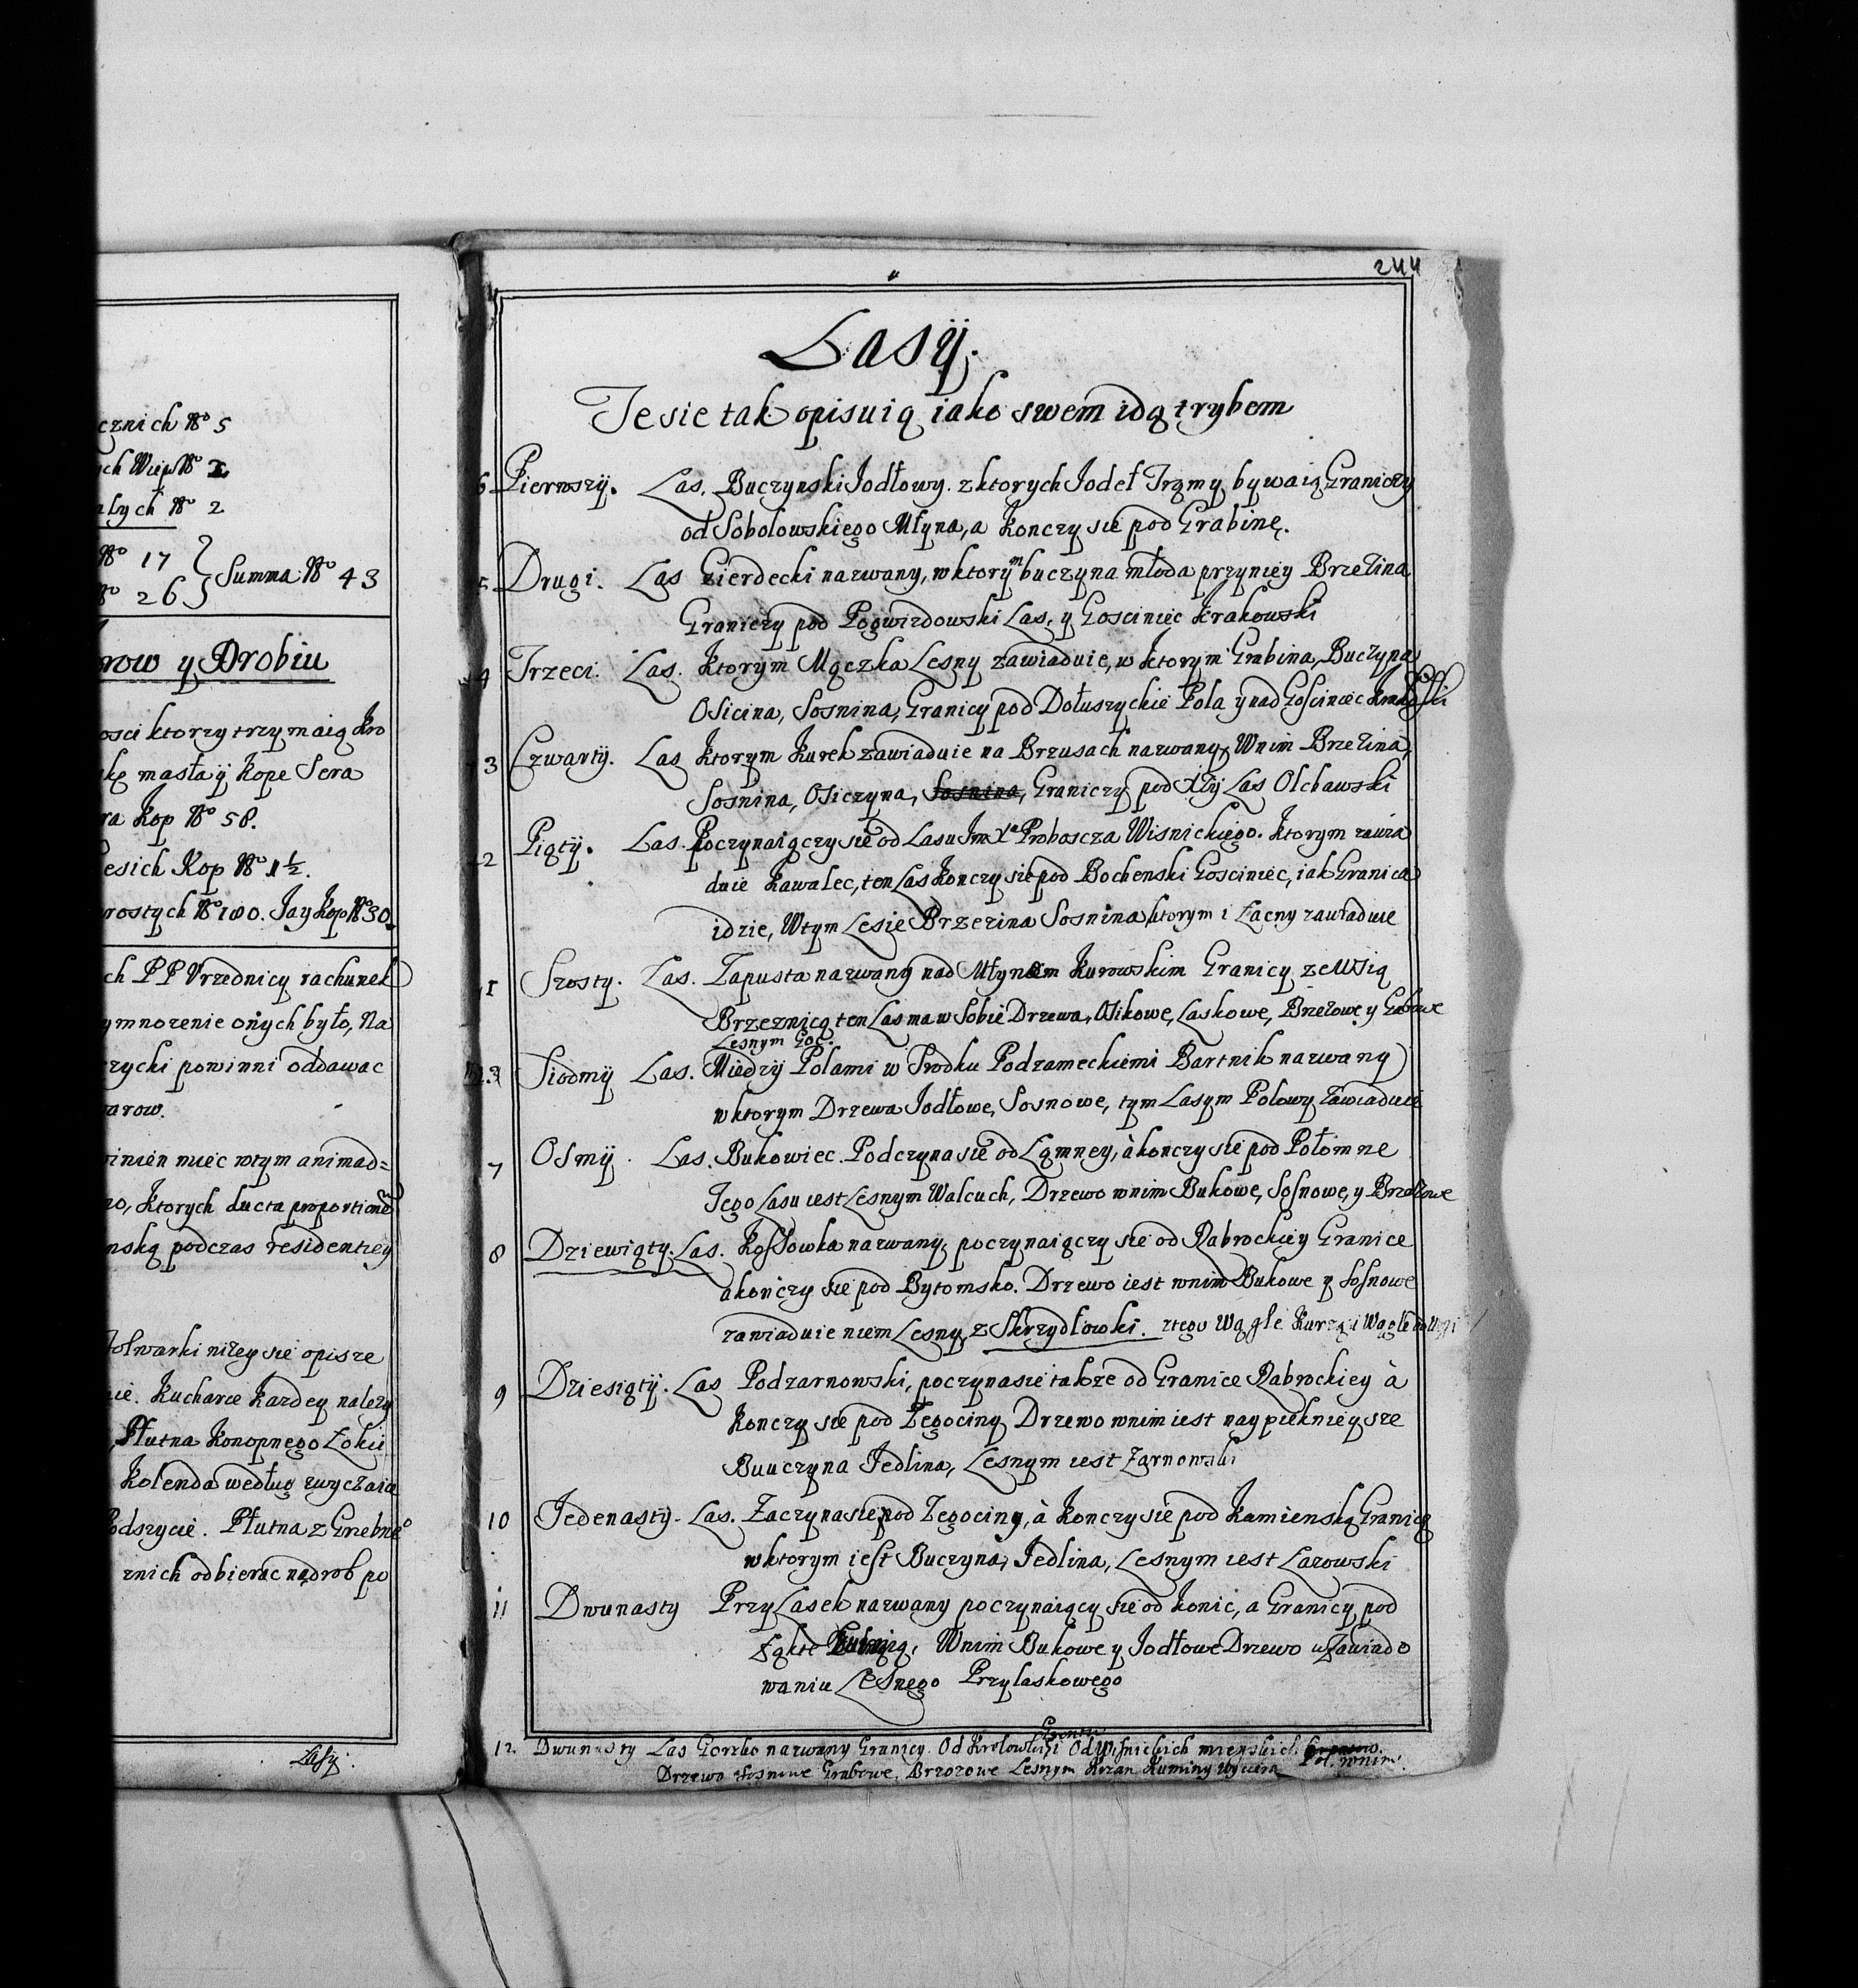 cznich No 5
ch Wiep No
ałych No 2
No 17
No 26
Summa No 43
row y Drobiu
osci ktorzy trzymaią kro
kę masła ÿ kope Sera
ra kop No 58.
esich Kop No 1½.
rostych No 180. Jay kop No 30.
ch PP Vrzednicy rachunek
ymnozenie onych było, Na
zycki powinni oddawac
arow.
inien miec wtym animad=
no, ktorych ducta proportione
nską podczas residentiey
folwarki nizey sie opisze
ie. Kucharce kazdey nalezy
Płutna konopnego Łokci
kolenda według zwyczaia
Podszycie. Płutna z Grebne
znich odbierac nadrob po
Lasy.
244
Lasÿ.
Te sie tak opisuią iako swem idą trybem
6 Pierwszÿ. Las. Buczynski Jodłowy. z ktorych Jodeł Tramy bywaią Graniczy
od Sobolowskiego Młyna, a konczy sie pod Grabinę.
5 Drugi. Las Gierdecki nazwany, w ktorym buczyna młoda przyniey Brzezina
Graniczy pod Pogwizdowski Las, y Gosciniec krakowski
4 Trzeci. Las. ktorym Mączka Lesny zawiaduie, w ktorym Grabina, Buczyna
Osicina, Sosnina, Granicy pod Dołuszyckie Pola y nad Gosciniec
3 Czwartÿ. Las ktorym kurek zawiaduie na Brzusach nazwany, Wnim Brzezina,
Sosnina, Osiczyna, Sosnina, Graniczy pod Xży Las Olchawski
2 Piątÿ. Las. Poczynaiączy sie od Lasu Jm Xa Proboscza Wisnickiego. ktorym zawia
duie kawalec, ten Las konczy sie pod Bochenski Gosciniec, iak Granica
idzie, Wtym Lesie Brzezina Sosnina, ktorym i Łacny zawiaduie
1 Szosty. Las. Zapusta nazwany nad Młynem kurowskim Granicy ze Wsią
Brzeznicą ten Las ma w Sobie Drzewa, Osikowe, Laskowe, Brzezowe y
Lesnym
Siodmÿ Las. Miedzÿ Polami w Srodku Podzameckiemi Bartnik nazwany
w ktorym Drzewa Jodłowe, Sosnowe, tym Lasym Polowy zawiaduie
7 Osmÿ. Las. Bukowiec. Podczyna sie od Łomney, à konczy sie pod Połomne
Tego Lasu iest Lesnym Walcuch, Drzewo wnim Bukowe, Sosnowe, y Brzozowe
8 Dziewiąty. Las. Kosłowka nazwany, poczynaiączy sie od Rabrockiey Granice
a konczy sie pod Bytomsko. Drzewo iest wnim Bukowe y Sosnowe
zawiaduie niem Lesny z Skrzydłowki. ztego Wągle Kurzą i Wągle
9 Dziesiątÿ. Las Podzarnowski, poczyna sie takze od Granice Rabrockiey à
konczy sie pod Żegociną Drzewo wnim iest naypieknieysze
Buuczyna Jedlina, Lesnym iest Zarnowski
10 Jedenastÿ. Las. Zaczyna sie pod Zegociną, à konczy sie pod kamienską Granicą
w ktorym iest Buczyna, Jedlina, Lesnym iest Lazowski
11 Dwunasty Przy Lasek nazwany poczynaiący sie od konic, a Granicy pod
Łąkte Wnim Bukowe y Jodłowe Drzewo w Zawiado
waniu Lesnego Przylaskowego
12. Dwunasty Las Gorzko nazwany Granicy. Od Krolowki i Od Wisnickich mieyskich Pol. wnim
Drzewo Sosnowe Grabowe, Brzozowe Lesnym